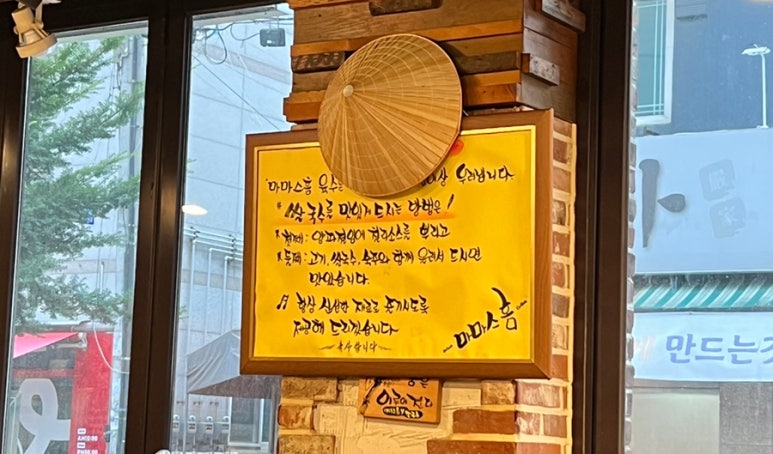 마마스홈 육수를 이상 우려냅니다.
쌀국수를 맛있게 드시는 방법은!
첫째: 양파절임에 칠리소스를 뿌리고
둘째: 고기, 쌀국수, 숙주와 함께 올려서 드시면
맛있습니다.
항상 신선한 재료로
제공해 드리겠습니다.
감사합니다
마마스홈
만드는